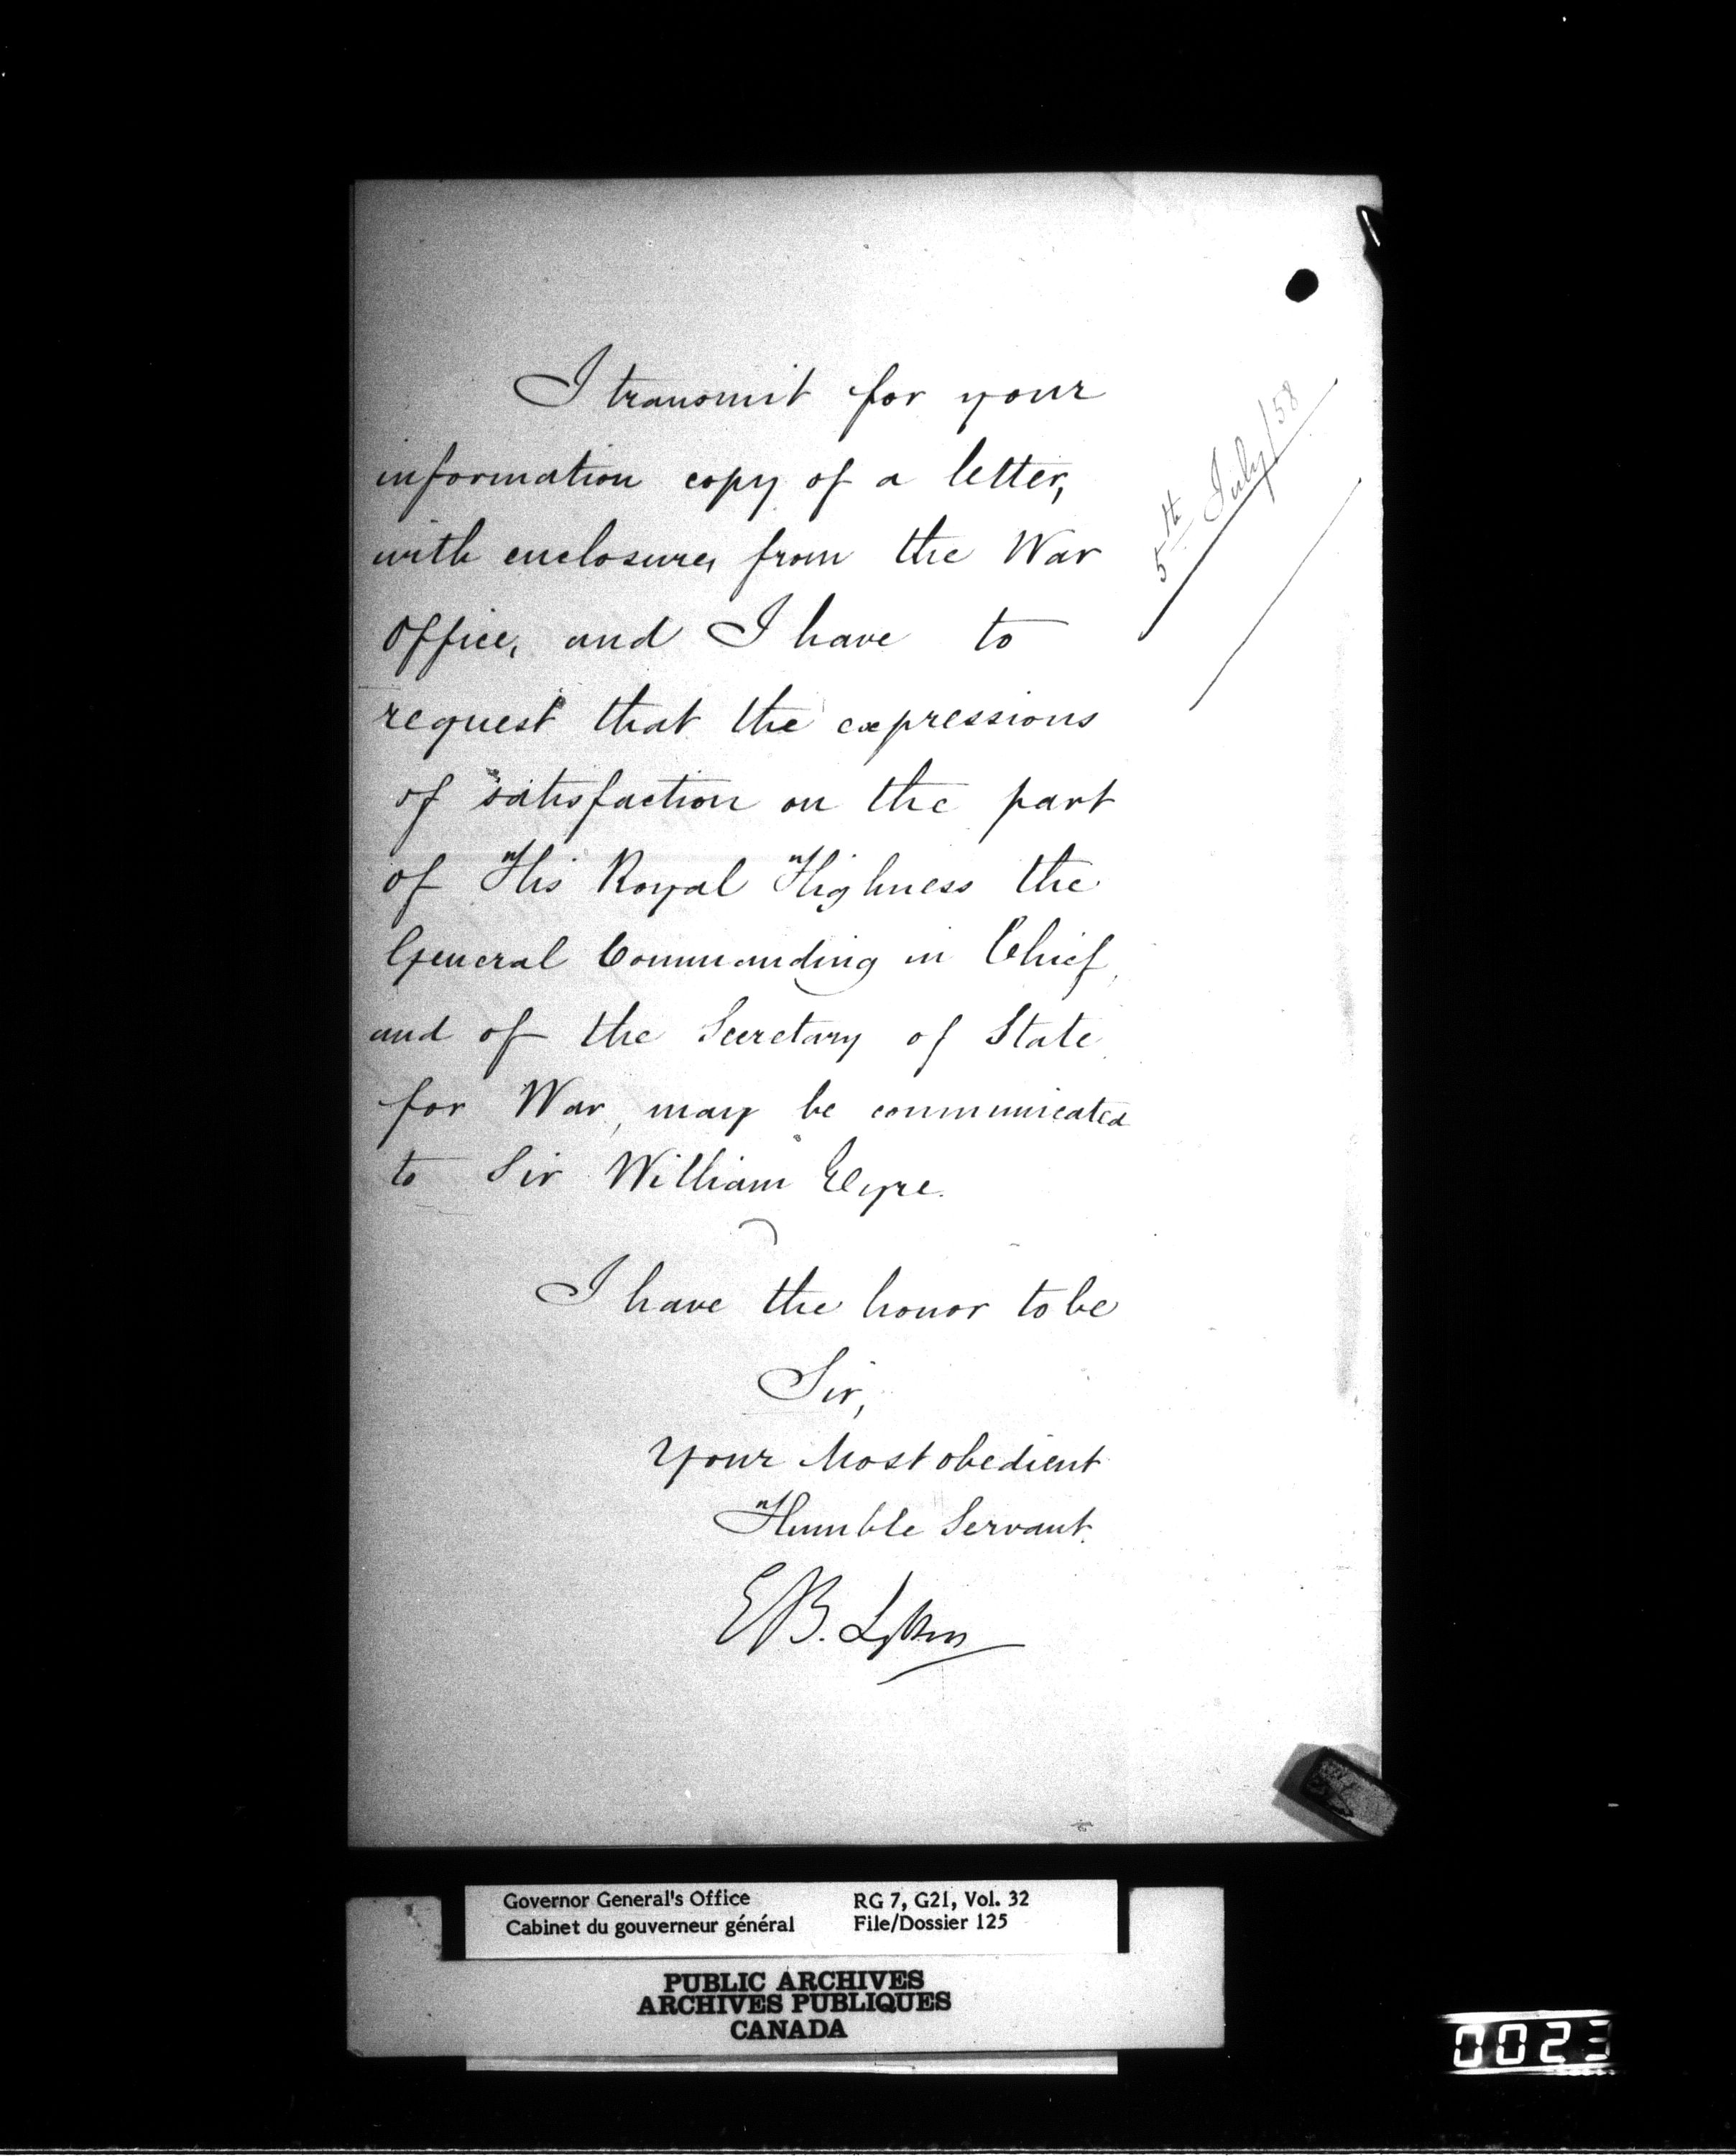 I transmit for your
information copy of a letter,
5th July/58
with enclosures from the War
Office, and I have to
request that the expressions
of satisfaction on the part
of His Royal Highness the
General Commanding in Chief,
and of the Secretary of State
for War, may be communicated
to Sir William Eyre.
I have the honor to be
Sir,
Your Most obedient
Humble Servant.
E B. Lytton
Governor General's Office
Cabinet du gouverneur général
RG 7, G21, Vol. 32
File/Dossier 125
PUBLIC ARCHIVES
ARCHIVES PUBLIQUES
CANADA
0023